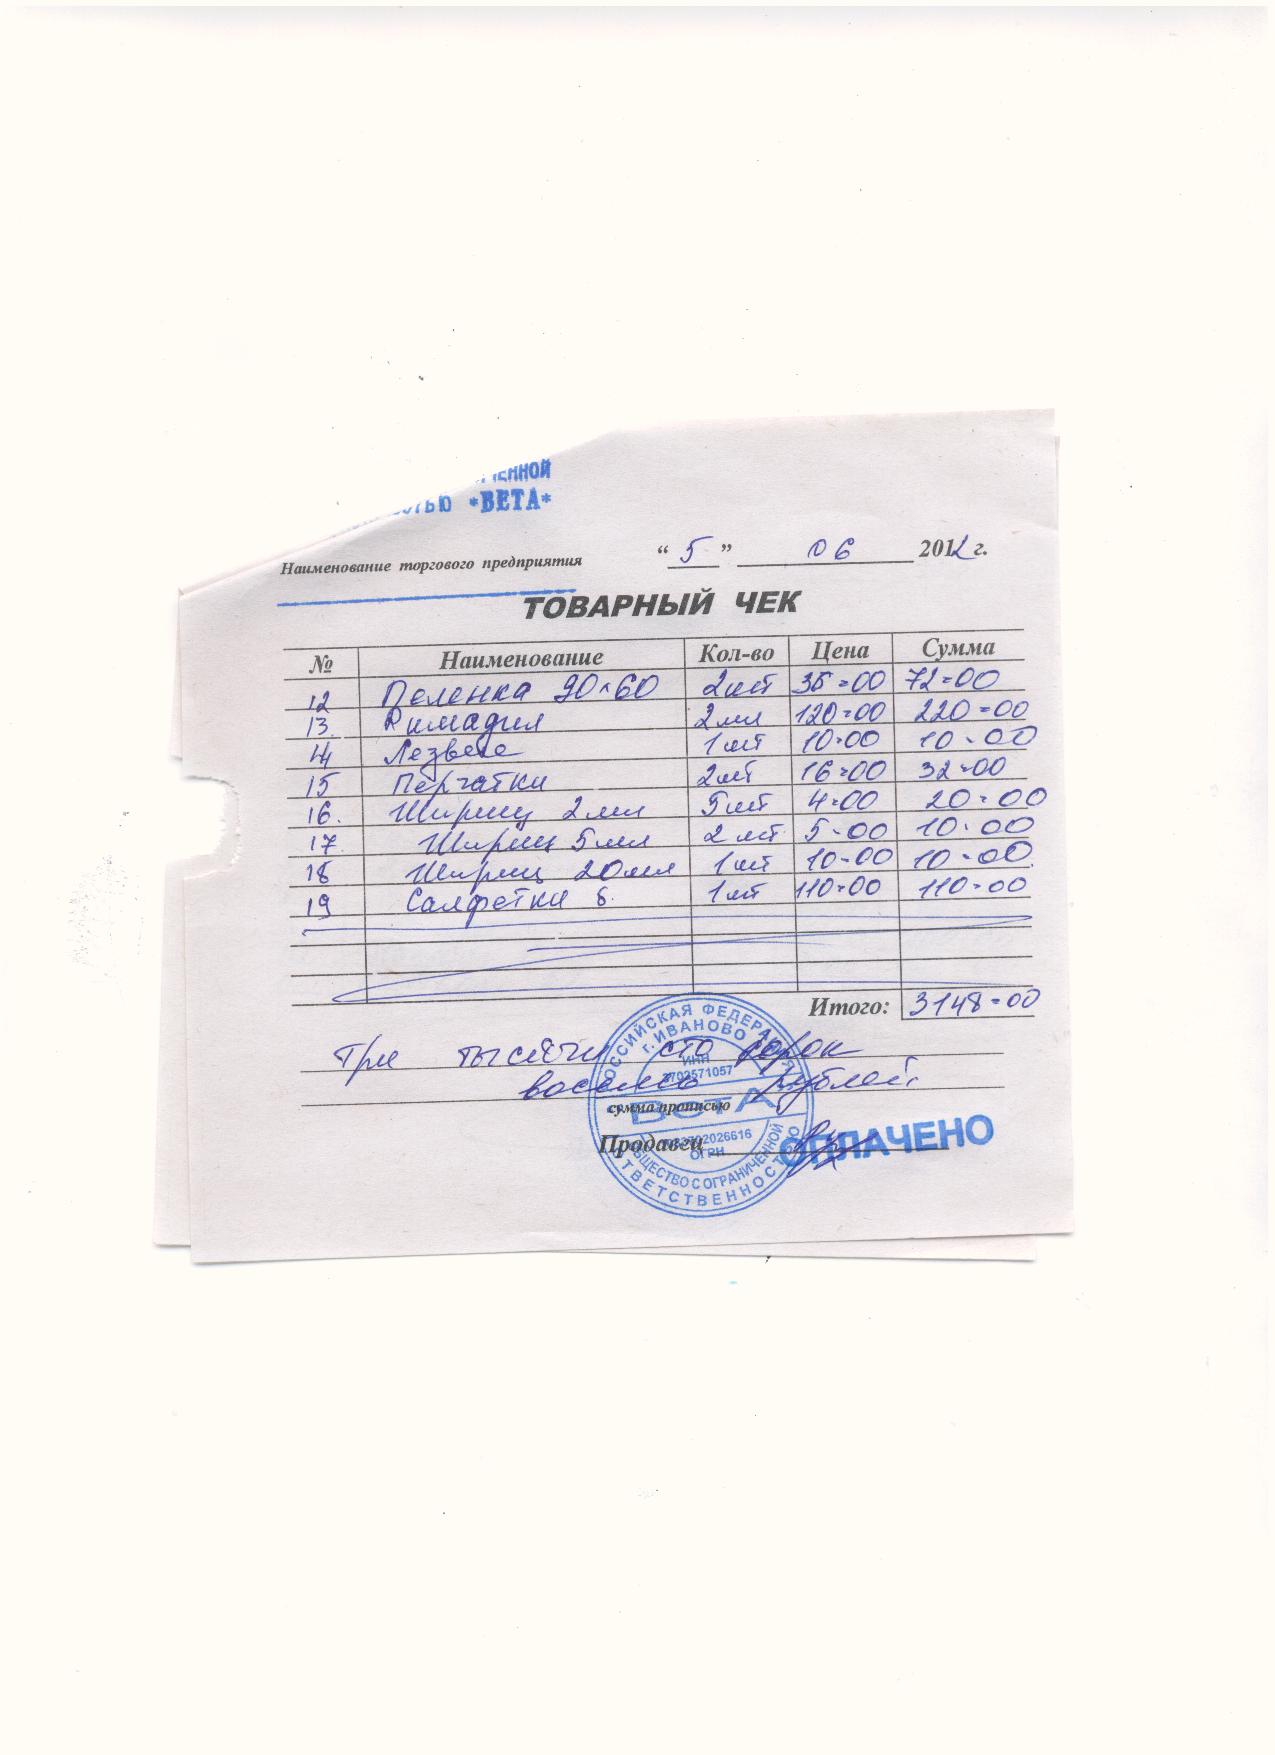 ЧЕННОЙ
СТЬЮ *ВЕТА*
Наименование торгового предприятия “ 5 ” 06 2012 г.
ТОВАРНЫЙ ЧЕК
№ Наименование Кол-во Цена Сумма
12 Пеленка 90×60 2шт 36=00 72=00
13. Римадил 2мл 120=00 220=00
14 Лезвее 1шт 10=00 10=00
15 Перчатки 2шт 16=00 32=00
16. Шприц 2мл 5шт 4=00 20=00
17. Шприц 5мл 2шт 5=00 10=00
18 Шприц 20мл 1шт 10=00 10=00
19 Салфетки б. 1шт 110=00 110=00
Итого: 3148=00
три тысячи сто сорок
восемь рублей
сумма прописью
Продавец
ОПЛАЧЕНО
РОССИЙСКАЯ ФЕДЕРАЦИЯ
г. ИВАНОВО
ИНН
3702571057
ВетА
ОГРН
ОБЩЕСТВО С ОГРАНИЧЕННОЙ
ОТВЕТСТВЕННОСТЬЮ